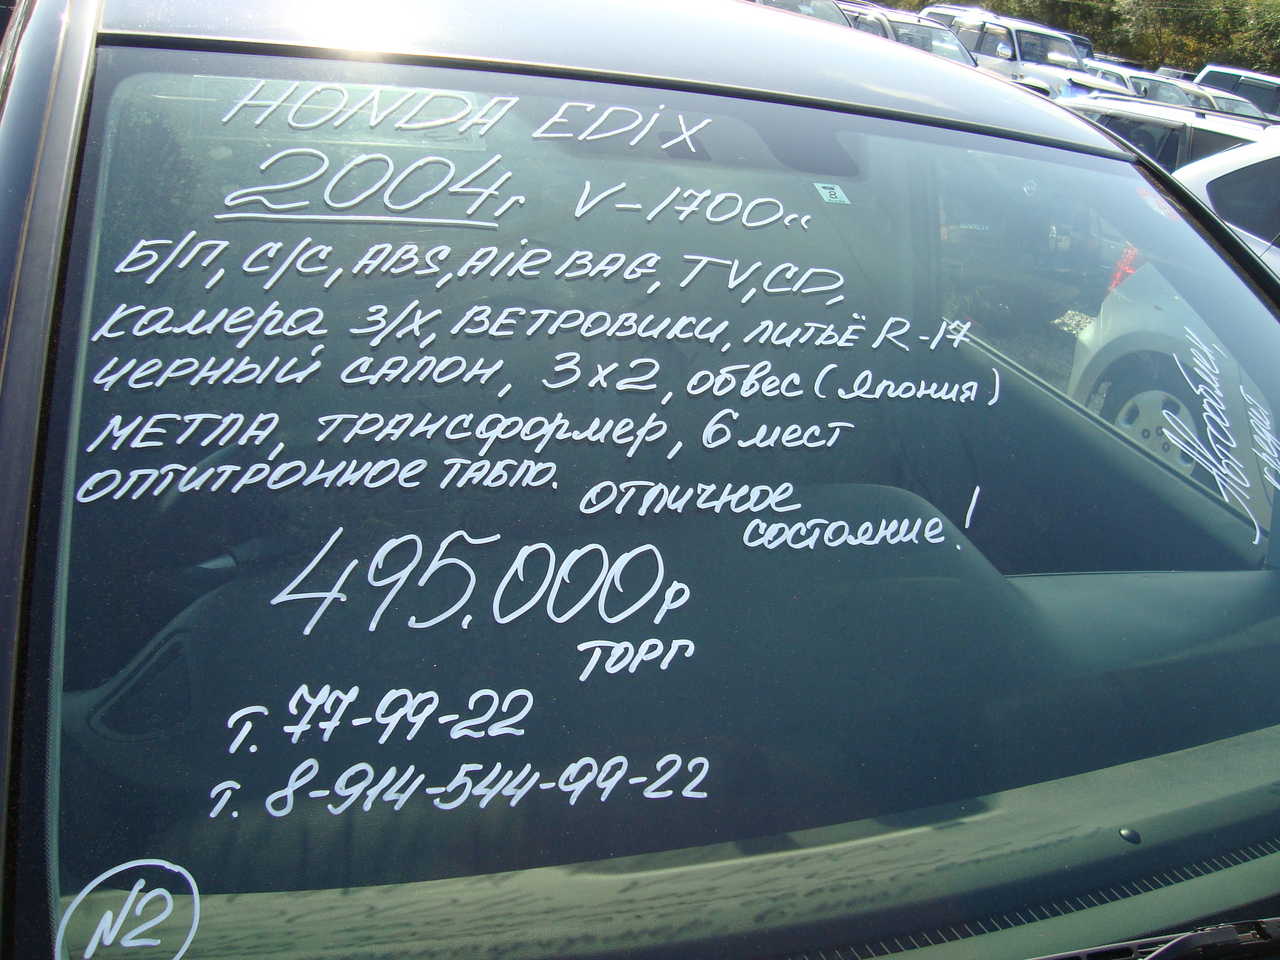 HONDA EDiX
2004г V-1700««
Б/П, С/С, ABS, AiRBAG, TV, CD,
камера З/Х, ВЕТРОВИКИ, литьё R-17
черный салон, 3x2, обвес (Япония)
МЕТЛА, трансформер, 6 мест
оптитронное табло.
отличное
состояние!
495.000р
торг
т. 77-99-22
т. 8-914-544-99-22
N2
Автообмен,